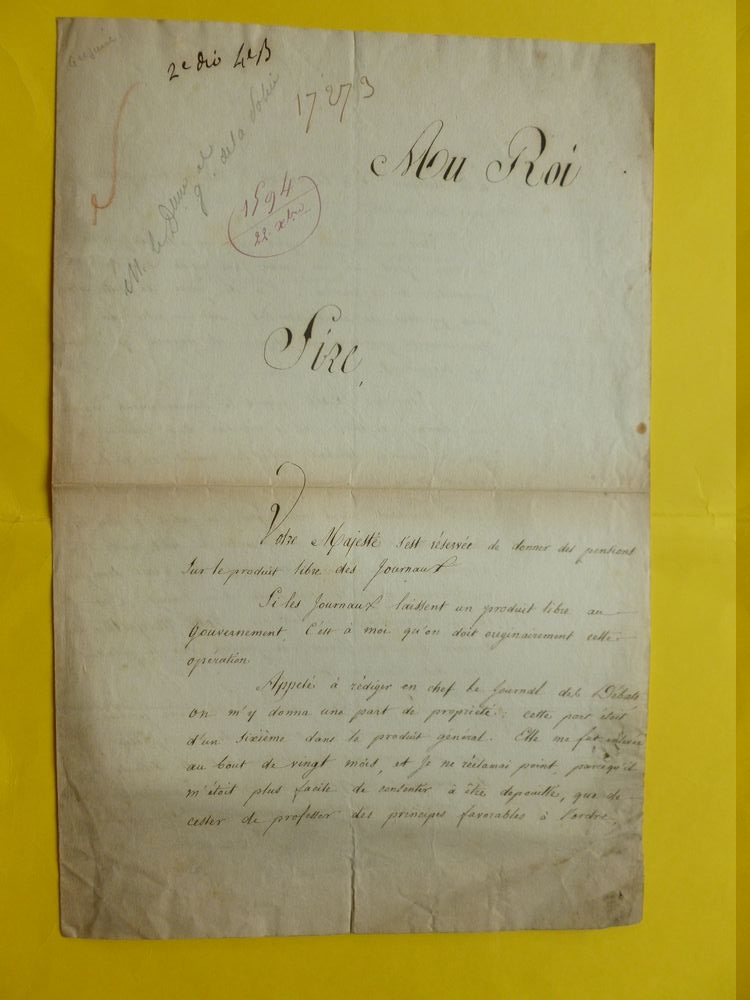 2e div 4e B
17273
M. le Dteur
de la Police
1594
22 xbre
Au Roi
Sire,
Votre Majesté s'est réservée de donner des pensions
Sur le produit libre des Journaux
Si les Journaux laissent un produit libre au
Gouvernement, C'est à moi qu'on doit originairement cette
opération.
Appelé à rédiger en chef le Journal des Débats
on m'y donna une part de propriété; cette part étoit
d'un Sixième dans le produit general. Elle me fut enlevée
au bout de vingt mois, et Je ne réclamai point, parcequ'il
m'étoit plus facile de consentir à être depouillé, que de
cesser de professer des principes favorables à l'ordre,